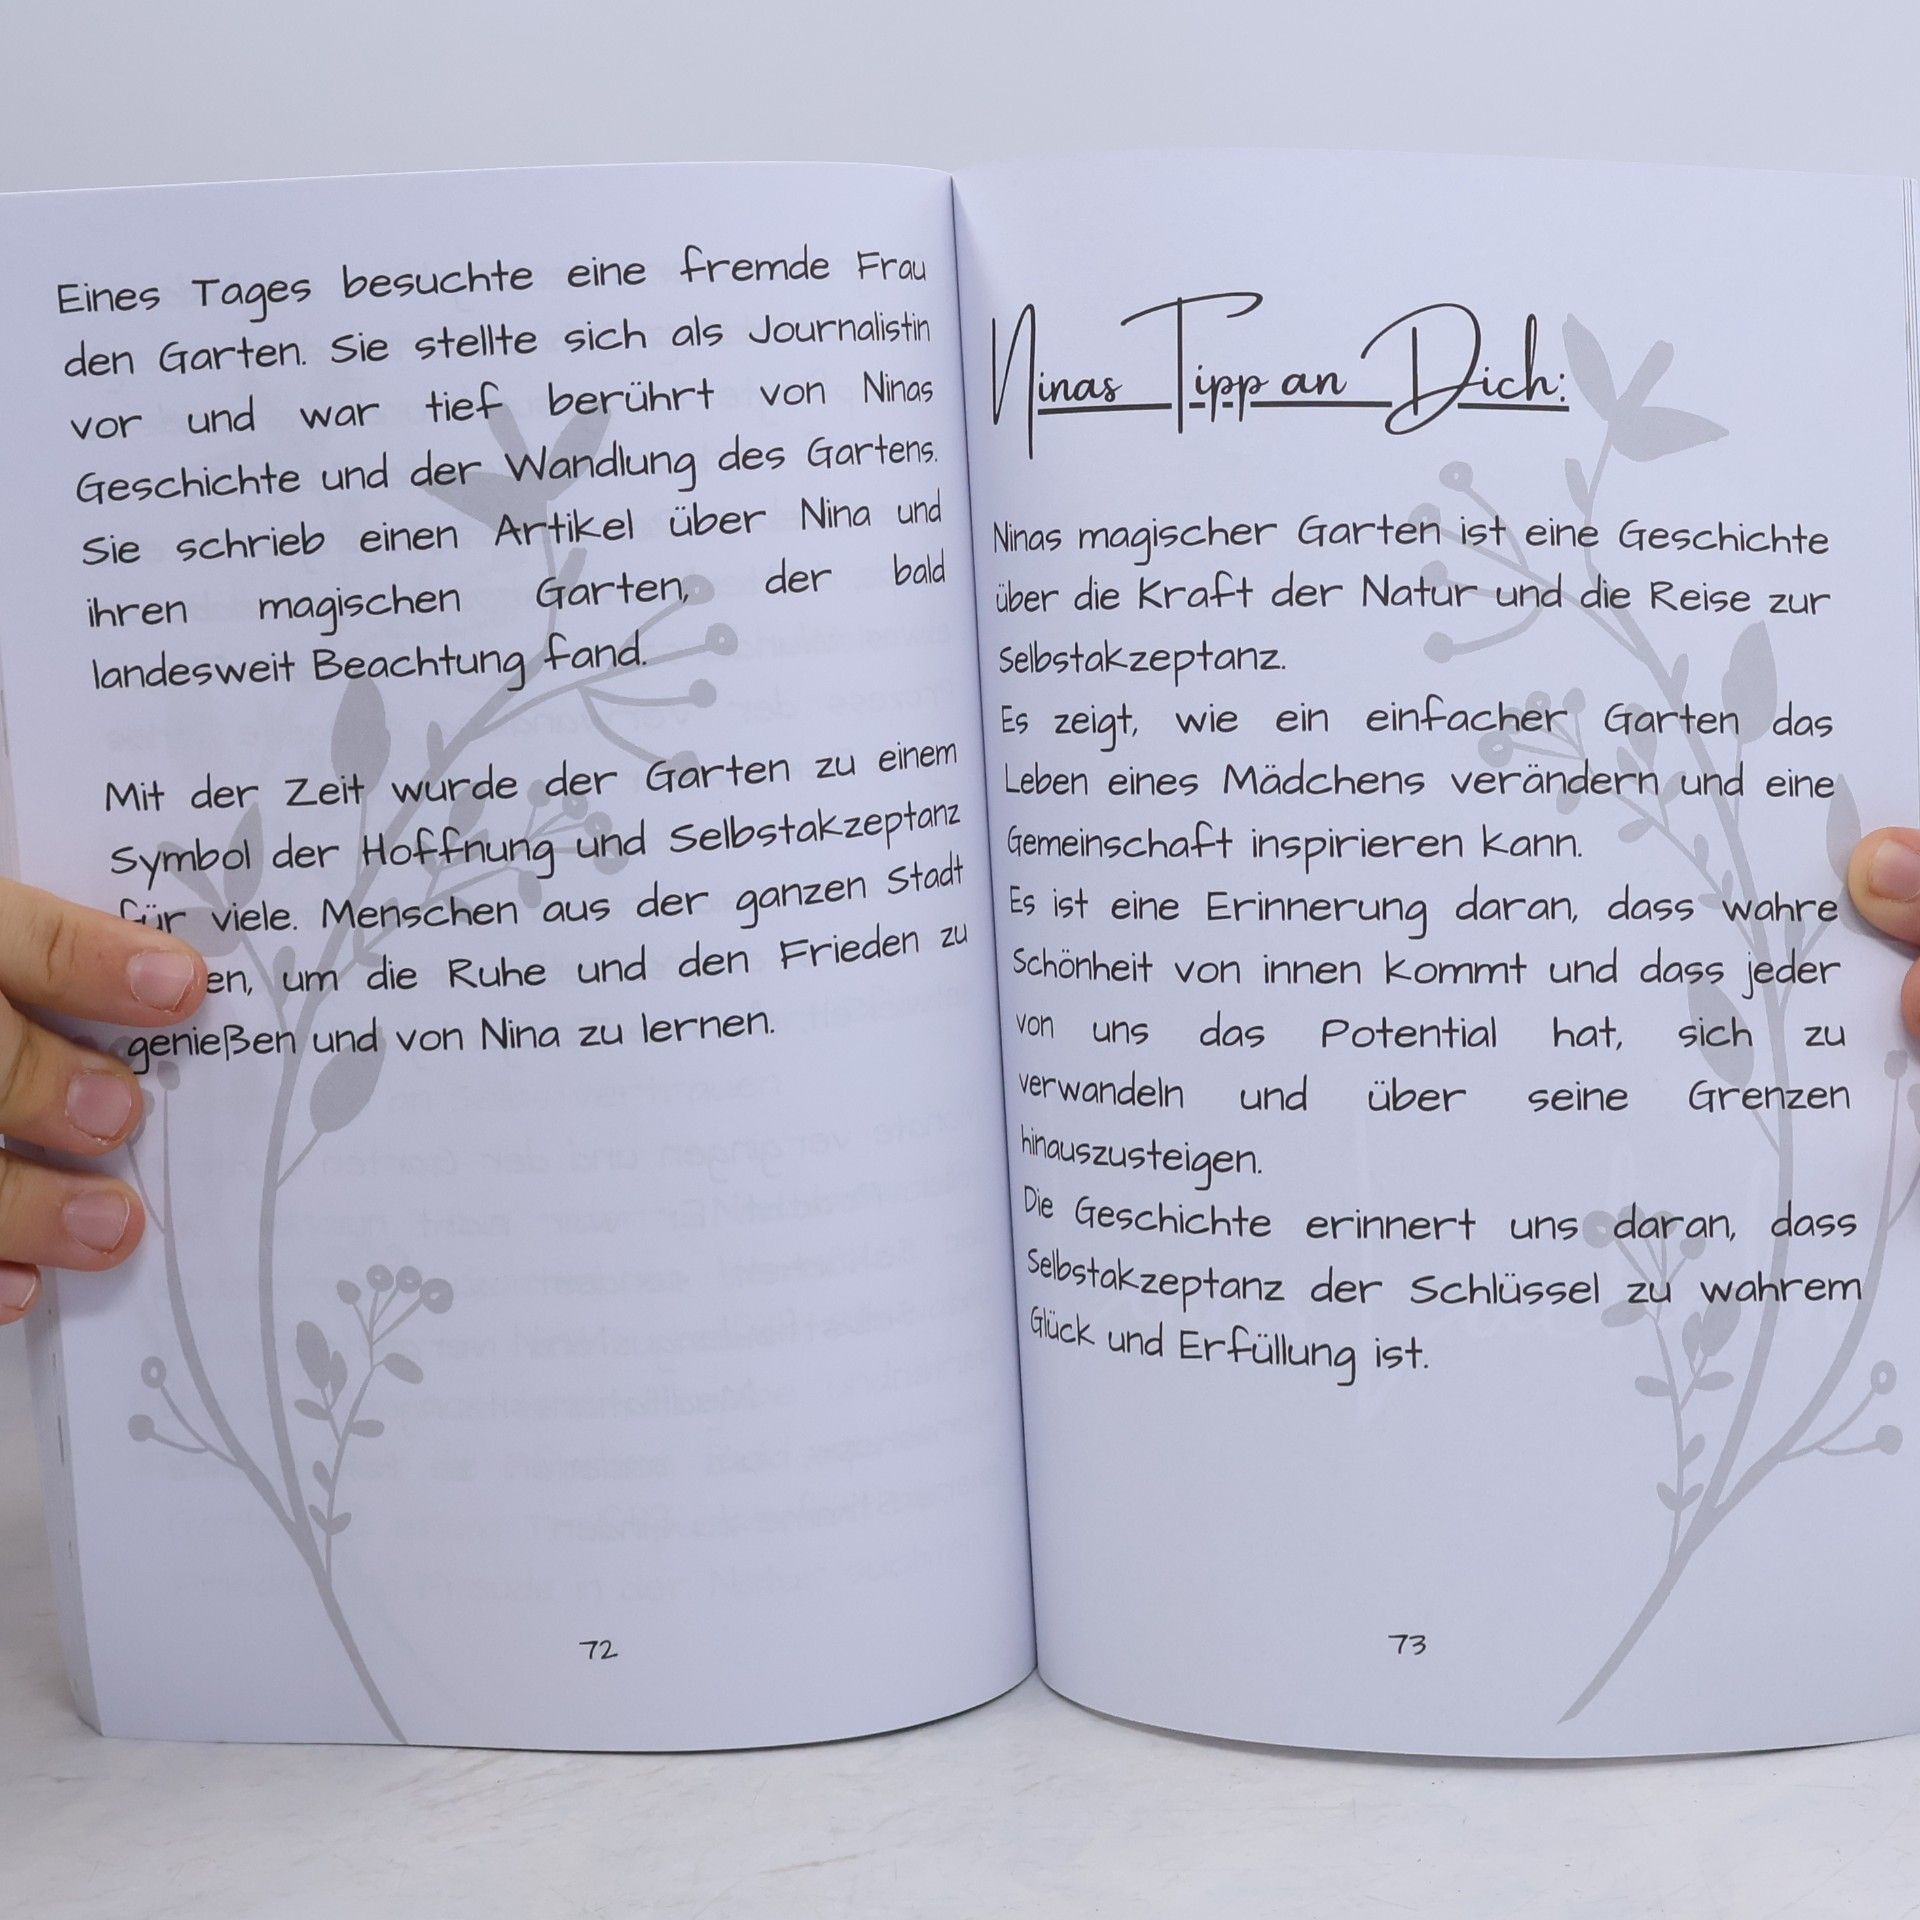 Eines Tages besuchte eine fremde Frau
den Garten. Sie stellte sich als Journalistin
vor und war tief berührt von Ninas
Geschichte und der Wandlung des Gartens.
Sie schrieb einen Artikel über Nina und
ihren magischen Garten, der bald
landesweit Beachtung fand.
Mit der Zeit wurde der Garten zu einem
Symbol der Hoffnung und Selbstakzeptanz
für viele. Menschen aus der ganzen Stadt
um die Ruhe und den Frieden zu
genießen und von Nina zu lernen.
72
Ninas Tipp an Dich:
Ninas magischer Garten ist eine Geschichte
über die Kraft der Natur und die Reise zur
Selbstakzeptanz.
Es zeigt, wie ein einfacher Garten das
Leben eines Mädchens verändern und eine
Gemeinschaft inspirieren kann.
Es ist eine Erinnerung daran, dass wahre
Schönheit von innen kommt und dass jeder
von uns das Potential hat, sich zu
verwandeln und über seine Grenzen
hinauszusteigen.
Die Geschichte erinnert uns daran, dass
Selbstakzeptanz der Schlüssel zu wahrem
Glück und Erfüllung ist.
73